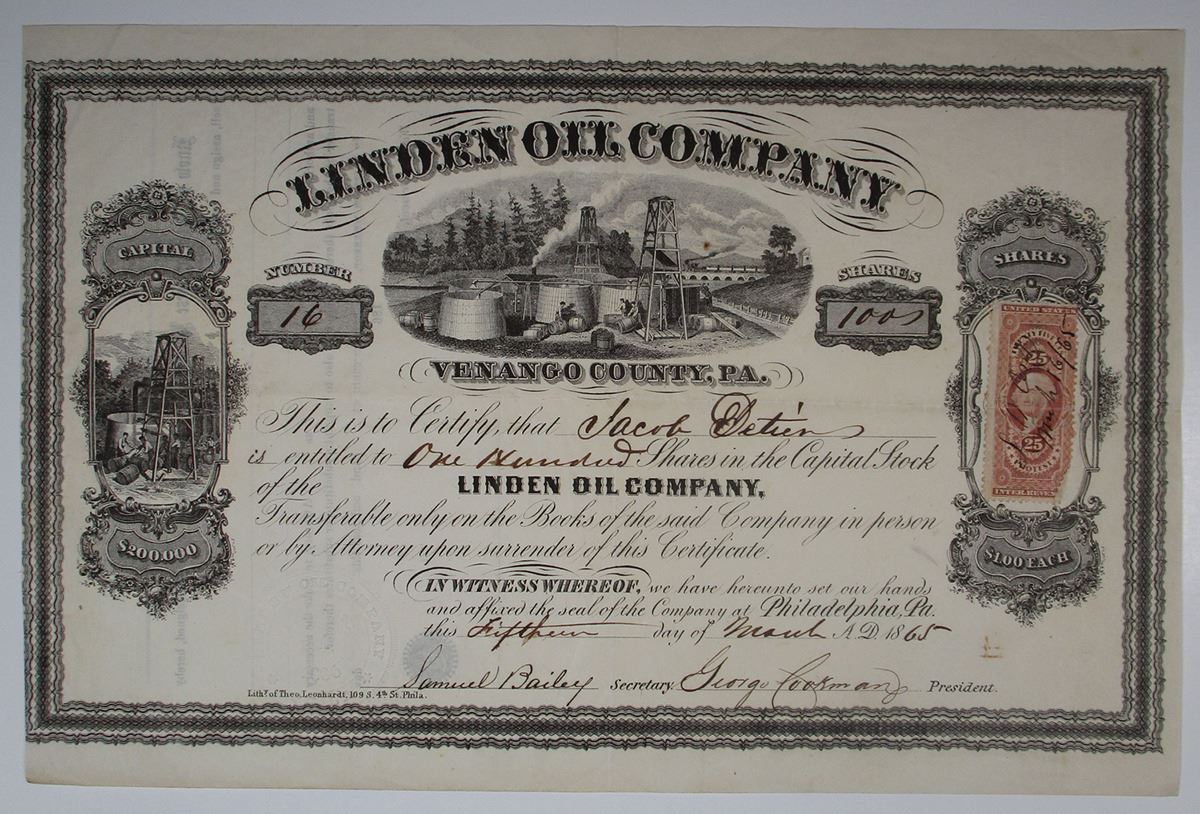 LINDEN OIL COMPANY
CAPITAL
NUMBER
SHARES
SHARES
16
100
UNITED STATES
25
25
INTER. REVENUE
VENANGO COUNTY, PA.
This is to Certify, that Jacob
is entitled to One Hundred Shares in the Capital Stock
of the LINDEN OIL COMPANY,
Transferable only on the Books of the said Company in person
or by Attorney upon surrender of this Certificate.
$200.000
$1.00 EACH
IN WITNESS WHEREOF, we have hereunto set our hands
and affixed the seal of the Company at Philadelphia, Pa.
this Fifteen day of March A.D. 1865
Samuel Bailey Secretary. George Cookman President.
Lith. of Theo. Leonhardt, 109 S. 4th St. Phila.